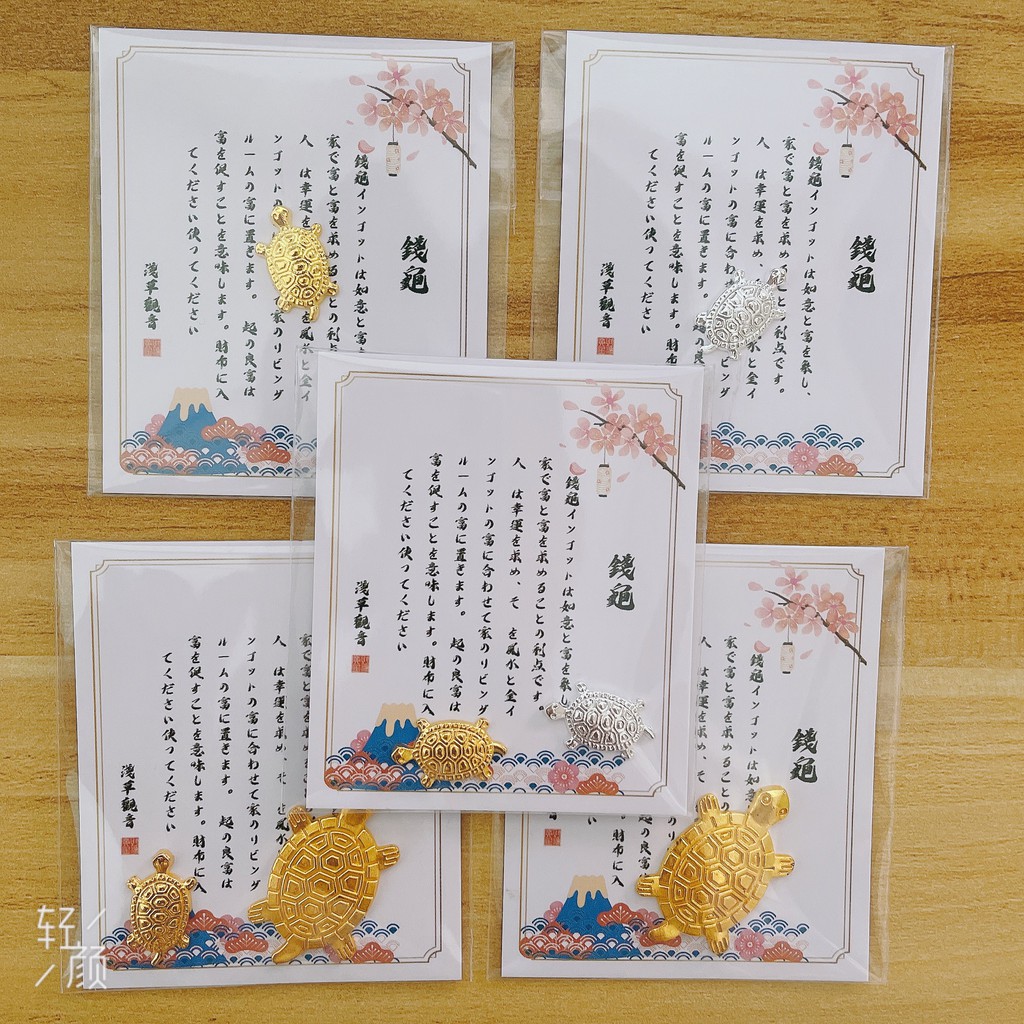 錢龜
錢龜インゴットは如意と富を
家で富と富を求めることの利点
人 は幸運を を風水と金イ
ンゴット 家のリビング
ルームの富に置きます。 超の良富は
富を促すことを意味します。財布に入
てください使ってください
淺草觀音
錢龜
錢龜インゴットは如意と富を象し、
家で富と富を求めることの利点です。
人 は幸運を求め、 水と金イ
ンゴットの富に合わ のリビング
ルームの富に置きます。 超の良富は
富を促すことを意味します。財布に入
てください使ってください
淺草觀音
錢龜
錢龜インゴットは如意と富を象し
家で富と富を求めることの利点です。
人 は幸運を求め、そ を風水と金イ
ンゴットの富に合わせて家のリビング
ルームの富に置きます。 超の良富は
富を促すことを意味します。財布に入
てください使ってください
淺草觀音
家で富と富を
人 は幸運を求め、そ を風水
ンゴットの富に合わせて家のリビング
ルームの富に置きます。 超の良富は
富を促すことを意味します。財布に入
てください使ってください
淺草觀音
錢龜
錢龜インゴットは如意と富を
家で富と富を求めること
人 は幸運を求め、そ
超の良富は
財布に入
音
轻颜